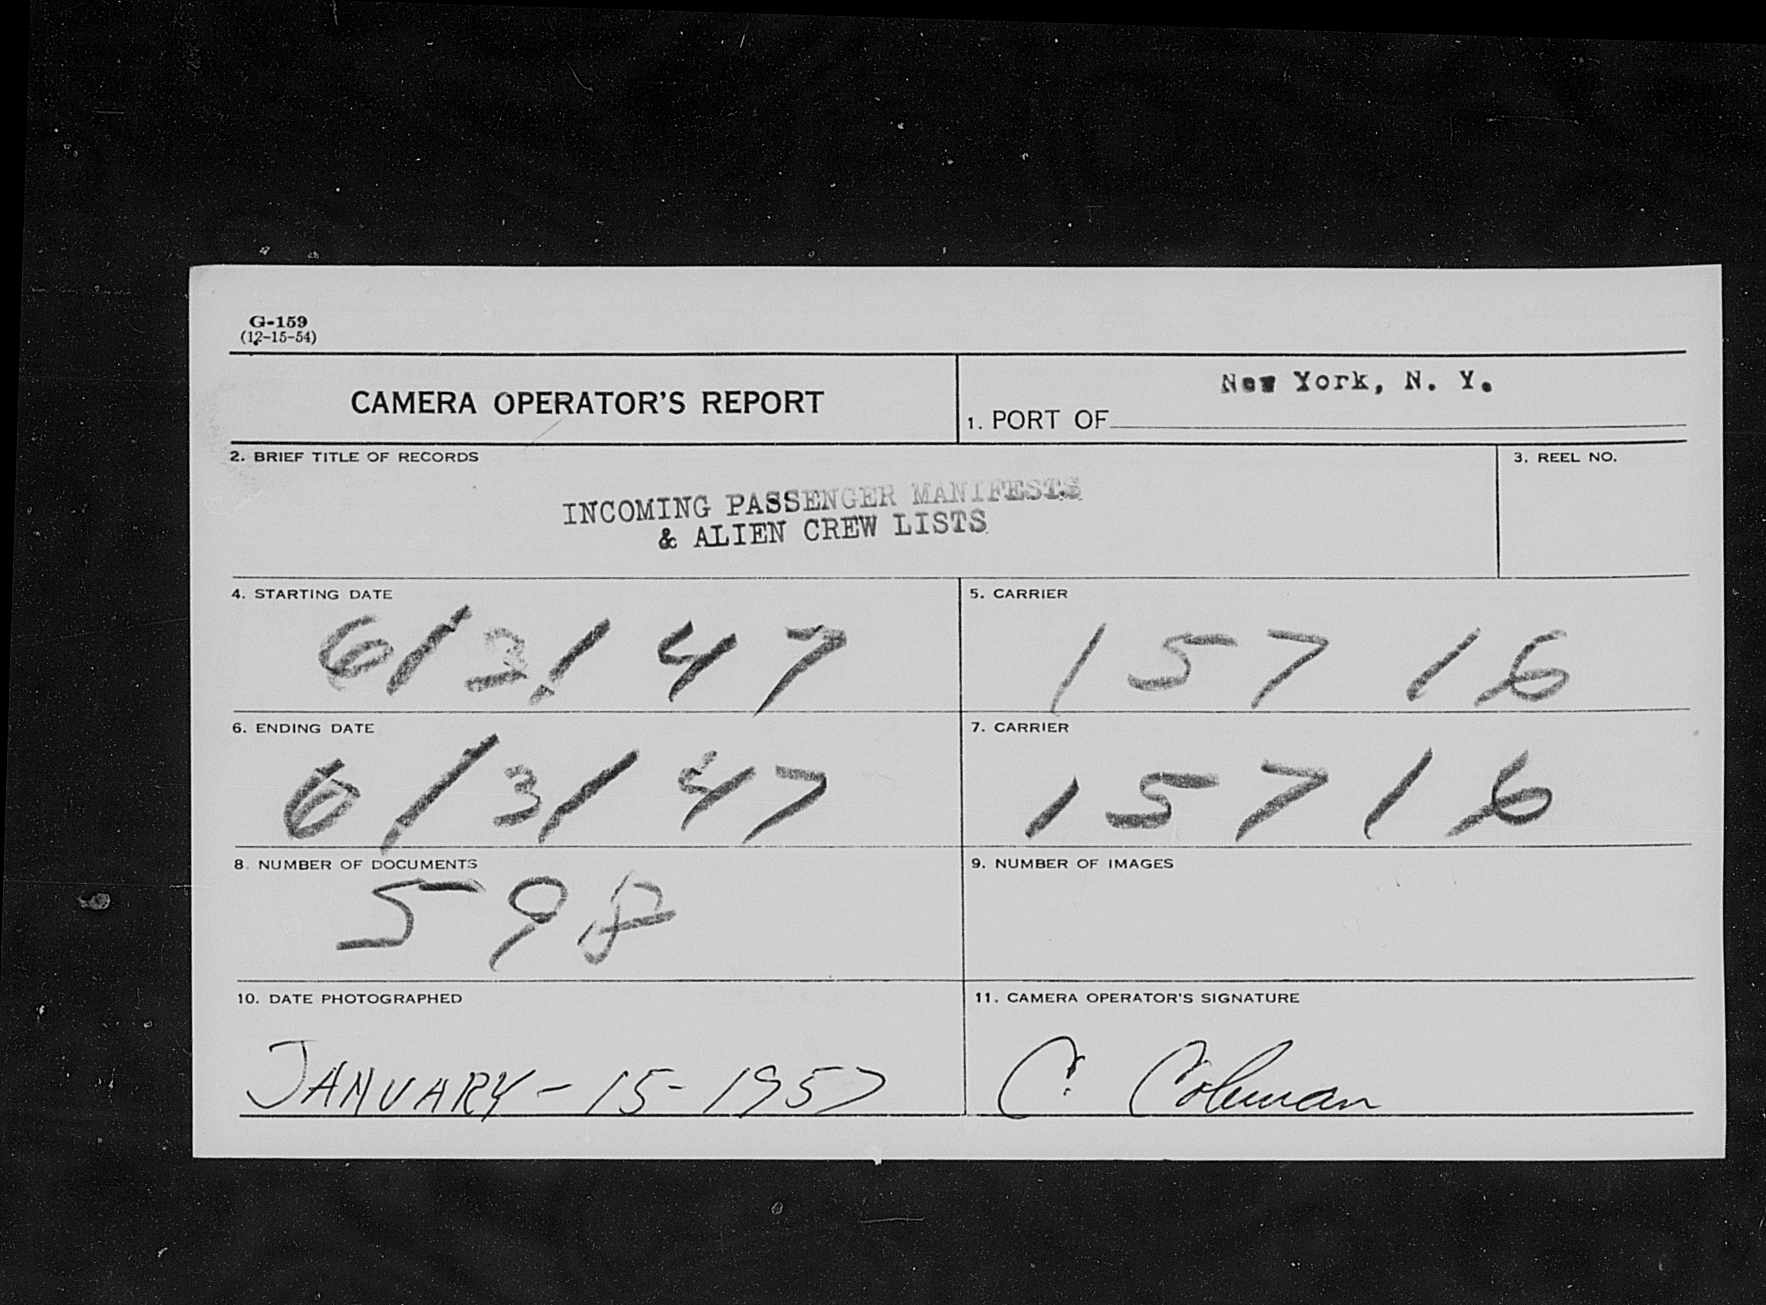 G-159
(12-15-54)
CAMERA OPERATOR'S REPORT
New York, N. Y.
1. PORT OF
2. BRIEF TITLE OF RECORDS
3. REEL NO.
INCOMING PASSENGER MANIFESTS
& ALIEN CREW LISTS
4. STARTING DATE
5. CARRIER
6/3/47
15716
6. ENDING DATE
7. CARRIER
6/3/47
15716
8. NUMBER OF DOCUMENTS
9. NUMBER OF IMAGES
598
10. DATE PHOTOGRAPHED
11. CAMERA OPERATOR'S SIGNATURE
JANUARY-15-1957
C. Coleman